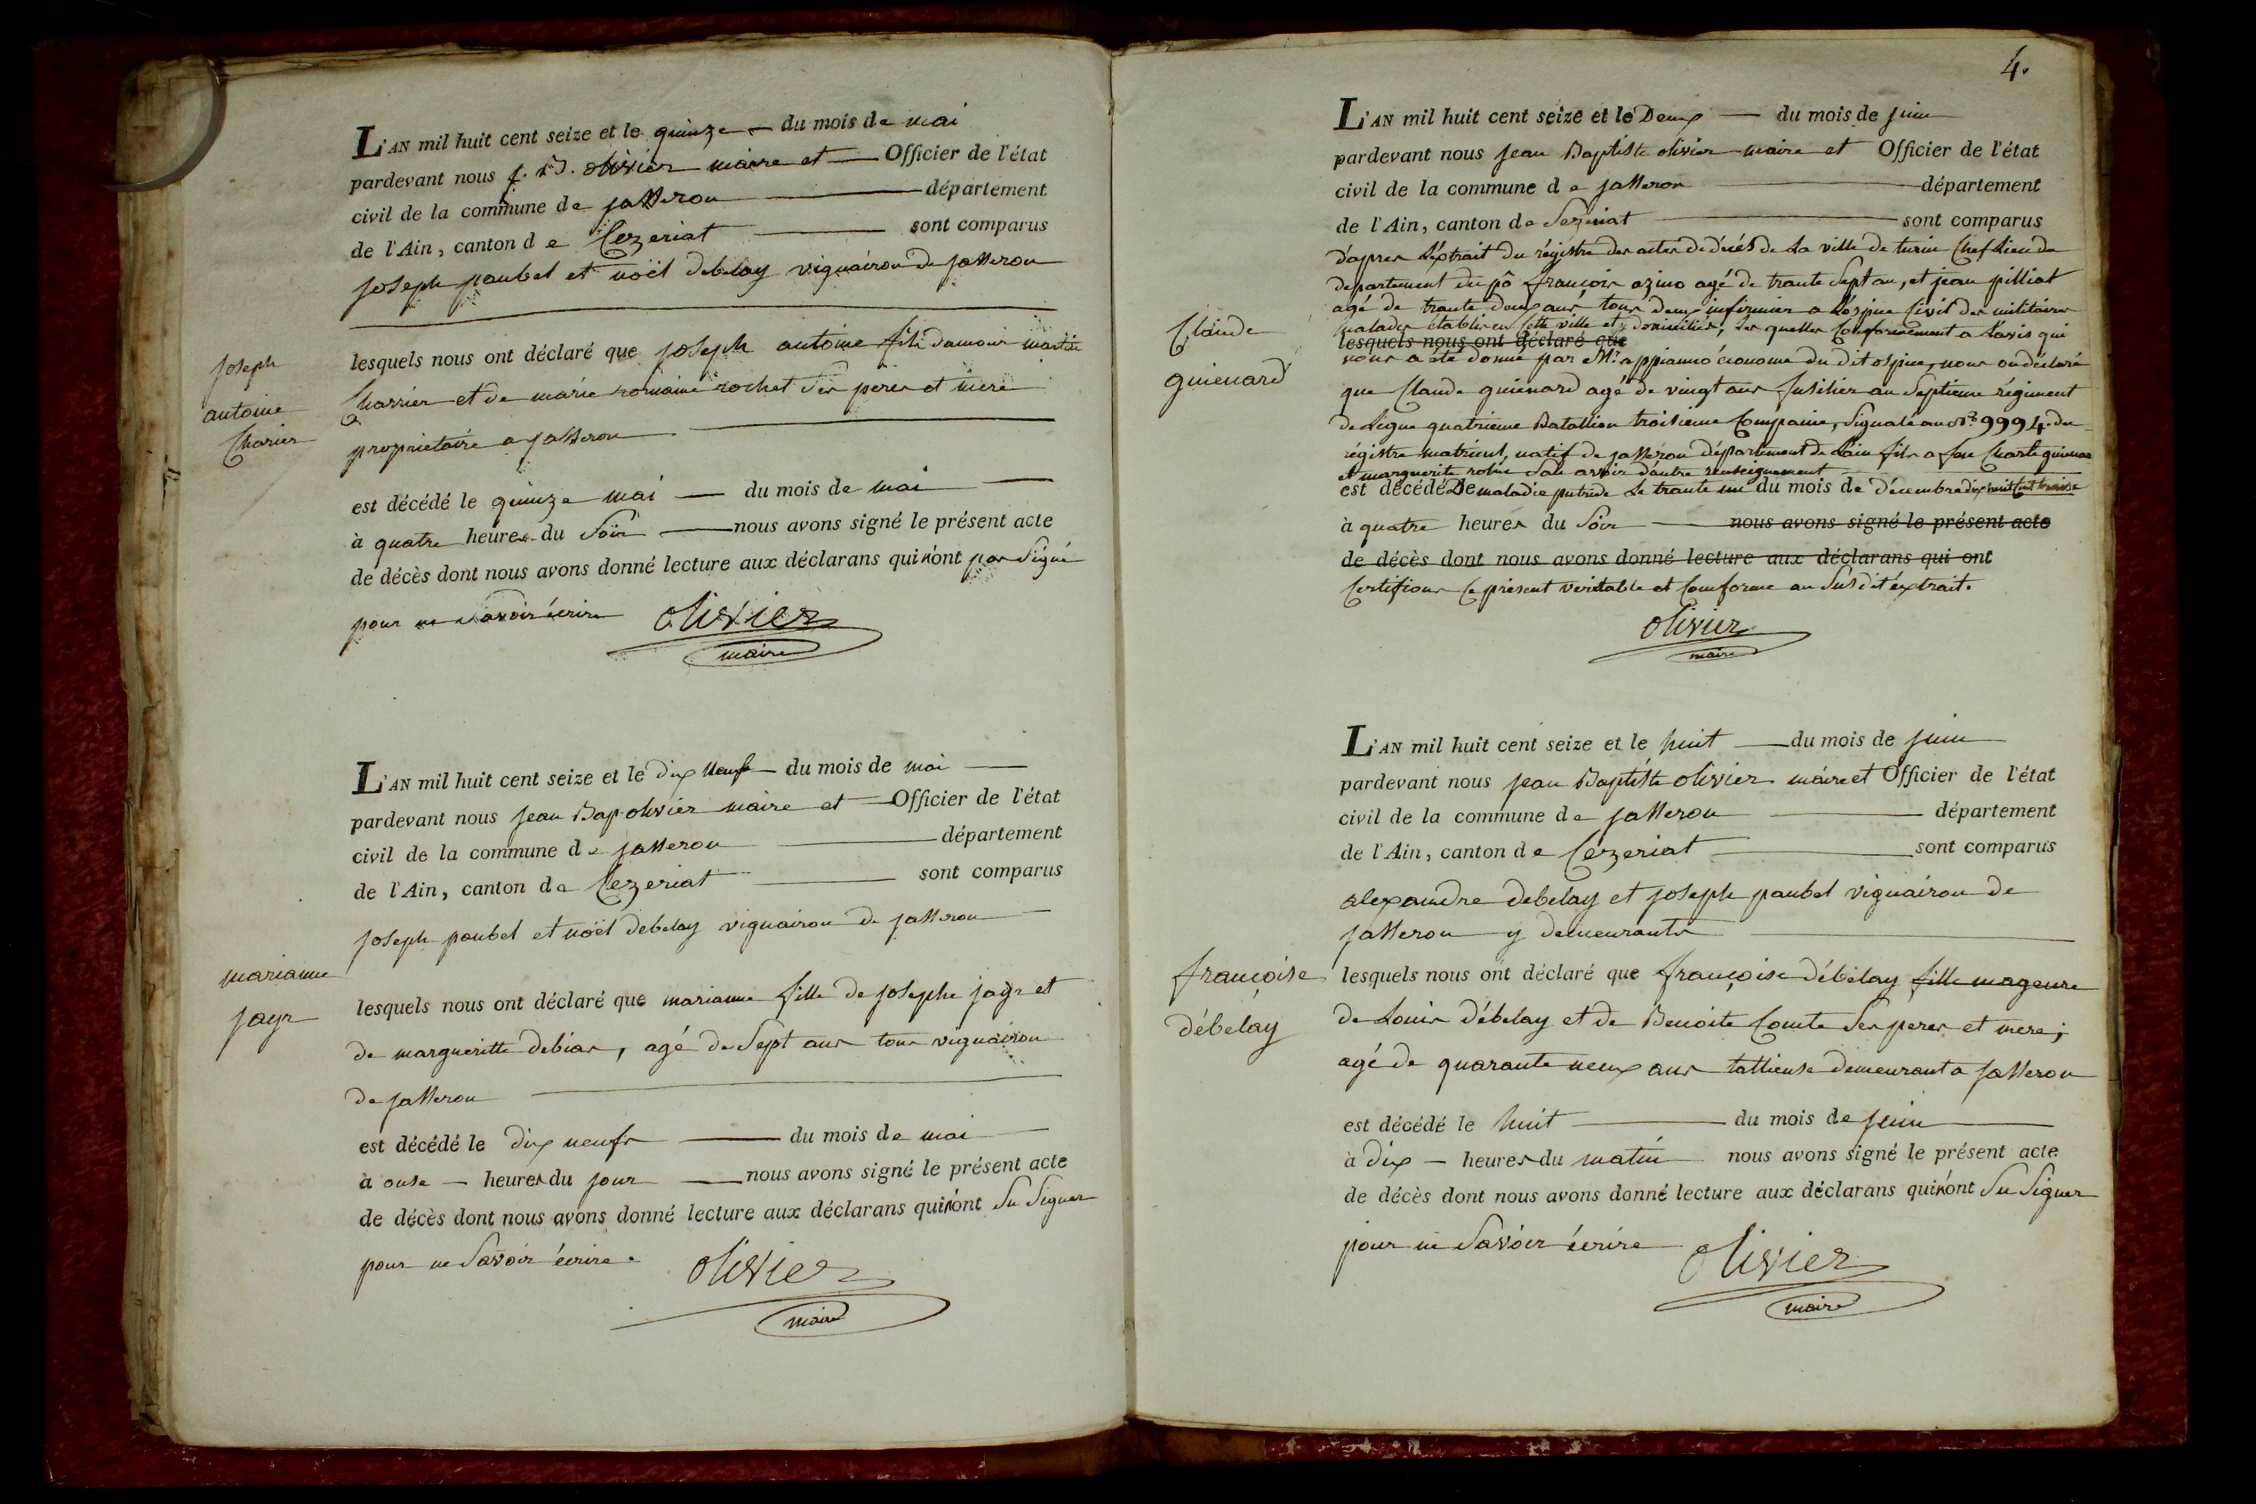 L'AN mil huit cent seize et le quinze — du mois de mai
pardevant nous j. B. olivier maire et — Officier de l'état
civil de la commune de jasseron — département
de l'Ain, canton de Cezeriat — sont comparus
joseph paubel et noël debelay vignairon de jasseron
joseph
antoine
Charier
lesquels nous ont déclaré que joseph antoine fils damoir martin
Charrier et de marie romaine rochet ses peres et mere
proprietaire a jasseron
est décédé le quinze mai — du mois de mai —
à quatre heures du soir — nous avons signé le présent acte
de décès dont nous avons donné lecture aux déclarans qui n'ont pas signé
pour ne savoir écrire olivier
maire
L'AN mil huit cent seize et le dix neuf — du mois de mai —
pardevant nous jean Bap olivier maire et — Officier de l'état
civil de la commune de jasseron — département
de l'Ain, canton de Cezeriat — sont comparus
joseph paubel et noël debelay vignairon de jasseron —
marianne
jayr
lesquels nous ont déclaré que marianne fille de josephe jayr et
de margueritte debias, agé de sept ans tous vignairon
de jasseron —
est décédé le dix neufs — du mois de mai —
à onse — heures du jour — nous avons signé le présent acte
de décès dont nous avons donné lecture aux déclarans qui n'ont su signer
pour ne savoir écrire. olivier
maire
4.
L'AN mil huit cent seize et le Deux — du mois de juin
pardevant nous jean Baptiste olivier maire et Officier de l'état
civil de la commune de jasseron — département
de l'Ain, canton de Sezeriat — sont comparus
d'apres l'éxtrait du régistre des actes de décés de la ville de turin Chef Lieu du
departement du pô françois azino agé de trante sept an, et jean pilliat
agé de trante deux ans, tous deux infirmier a l'ospice Civil des militaires
malades établis en Cette ville et y domiciliés, les quelles Conformément a l'avis qui
lesquels nous ont déclaré que
nous a été donné par Mr. appianno économe du dit ospice, nous on déclaré
Claude
guienard
que Claude guienard agé de vingt ans fusilier au septieme régiment
de Ligne quatrieme Batallion troisieme Compainie, signalé au no. 9994 du
régistre matricul, natif de jasseron département de Lain fils a feu Charle guienar
et marguerite robin sans avoir d'autre renseignement —
est décédé De maladie putride Le trante un du mois de décembre dix huit Cent traise
à quatre heures du soir — nous avons signé le présent acte
de décès dont nous avons donné lecture aux déclarans qui ont
Certifions Ce présent veritable et Conforme au susdit éxtrait.
olivier
maire
L'AN mil huit cent seize et le huit — du mois de juin
pardevant nous jean Baptiste olivier maire et Officier de l'état
civil de la commune de jasseron — département
de l'Ain, canton de Cezeriat — sont comparus
alexandre debelay et joseph paubel vignairon de
jasseron y demeurants —
françoise
débelay
lesquels nous ont déclaré que françoise débelay fille mageure
de Louis débelay et de Benoite Comte ses peres et mere;
agé de quarante neuf ans tallieuse demeurant a jasseron
est décédé le huit — du mois de juin —
à dix — heures du matin nous avons signé le présent acte
de décès dont nous avons donné lecture aux déclarans qui n'ont su signer
pour ne savoir écrire olivier
maire